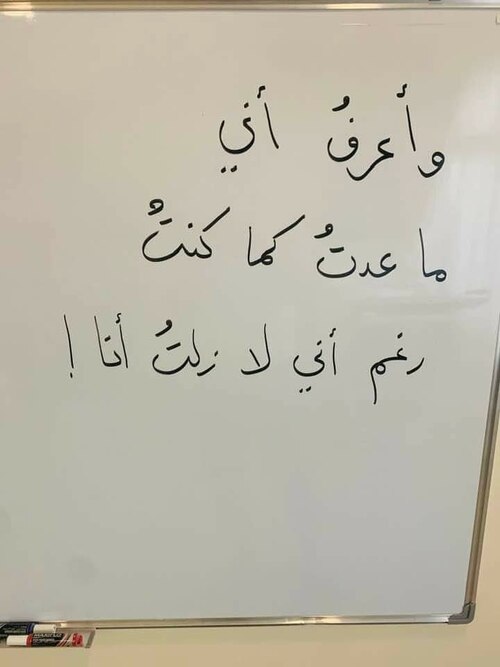 وأعرفُ أني
ما عدتُ كما كنتُ
رغم أني لا زلتُ أنا !